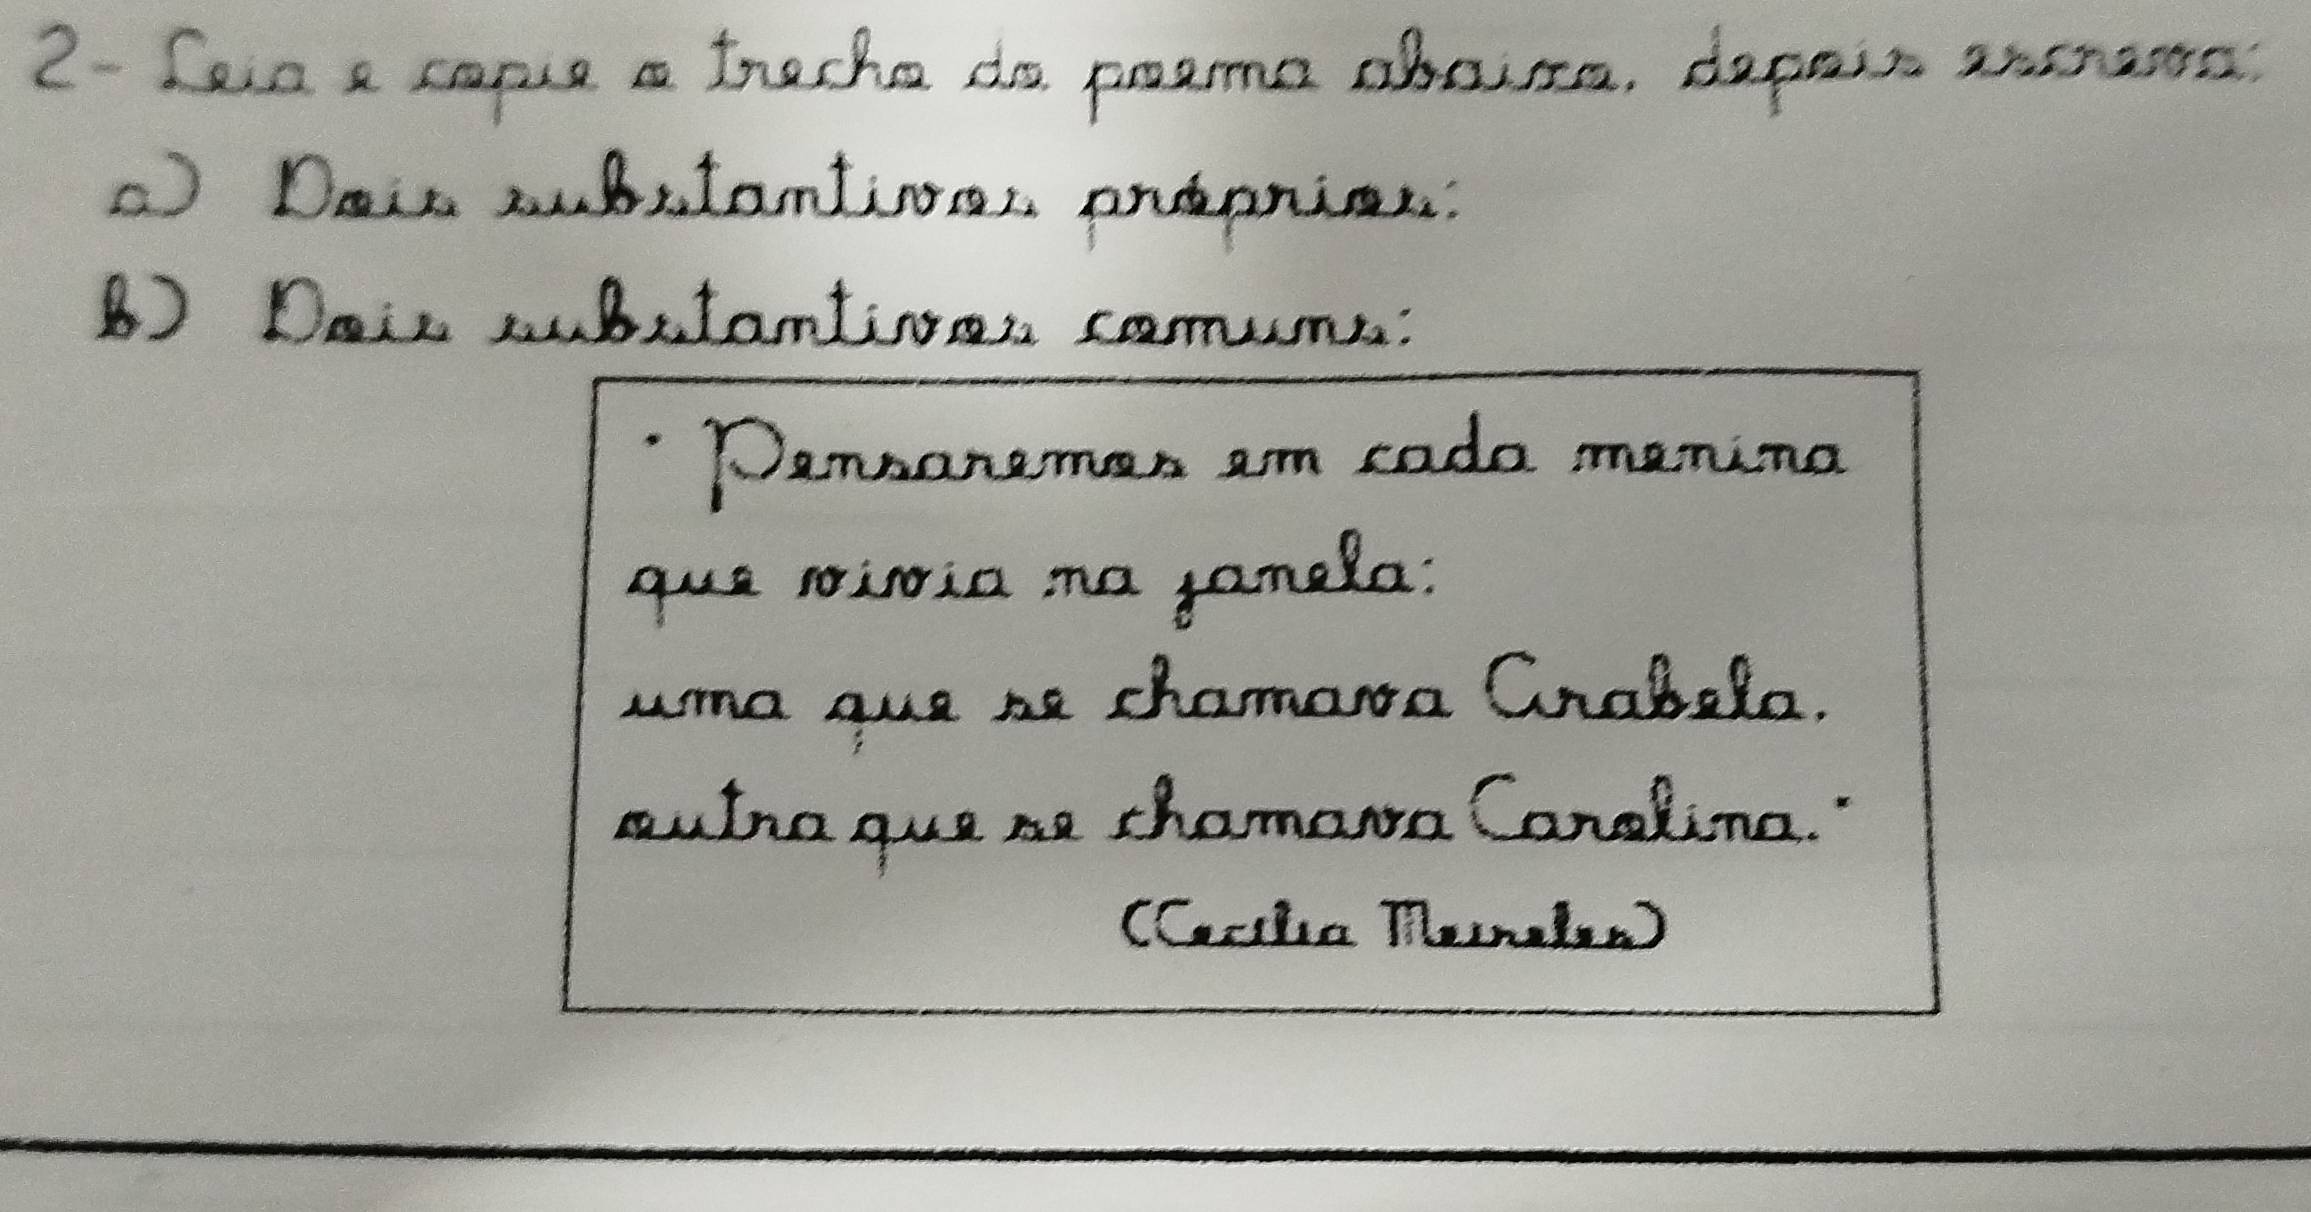 2- Leia e copie o trecho do poema abaixo. depois escreva:
a) Dois substantivos próprios:
b) Dois substantivos comuns:
"Pensaremos em cada menina
que vivia na janela:
uma que se chamava Arabela.
outra que se chamava Carolina."
(Cecilia Meireles)